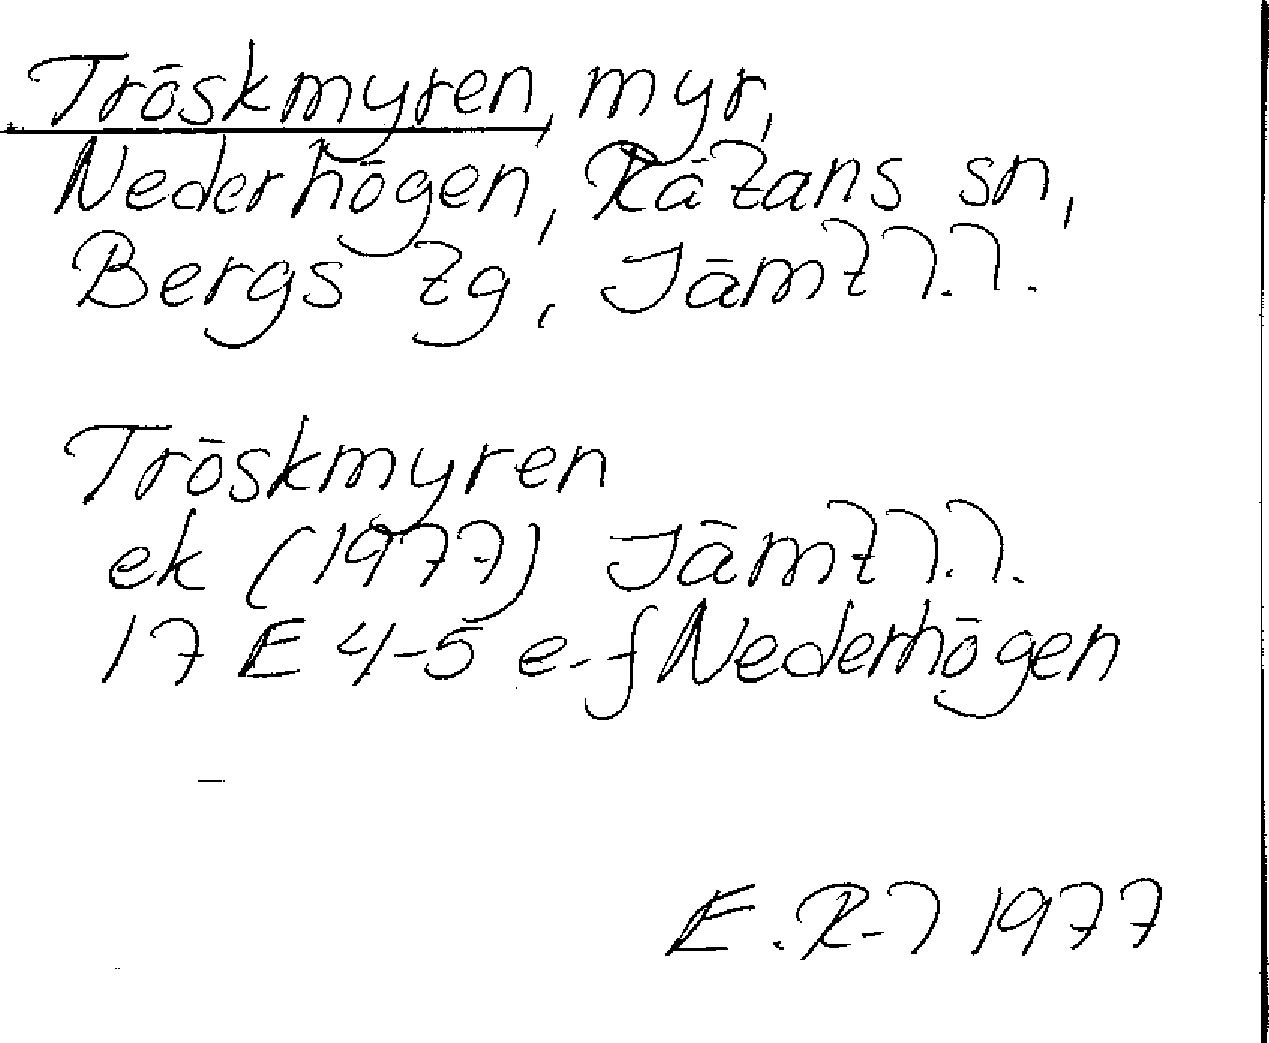 Tröskmyren, myr,
Nederhögen, Rätans sn,
Bergs tg, Jämtl.l.
Tröskmyren
ek (1977) Jämtl.l.
17 E 4-5 e-f Nederhögen
E.R-l 1977